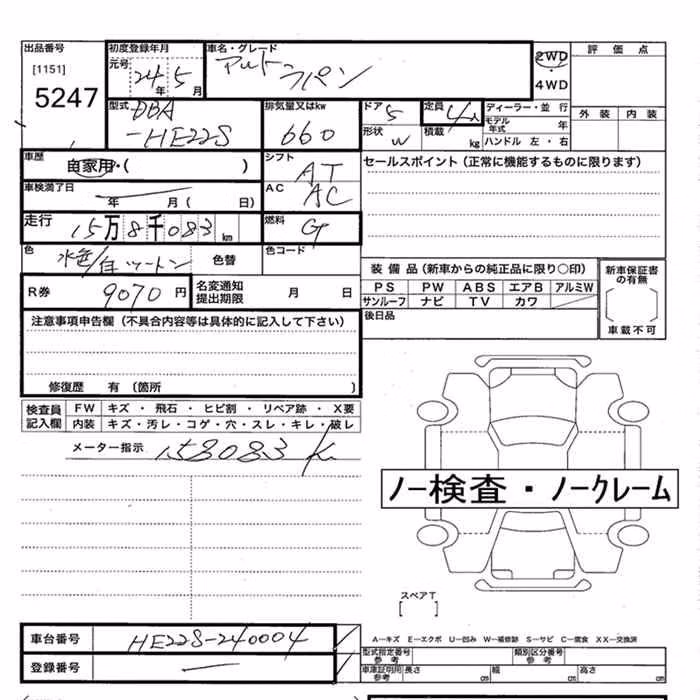 出品番号 初度登録年月 車名・グレード 評価点
[1151] 元号 24年 5月 アルト ラパン 2WD
5247 4WD
型式 DBA 排気量又はkw ドア 5 定員 4人 ディーラー・並行 外装 内装
-HE22S 660 形状 W 積載 kg モデル年式 年
ハンドル 左・右
車歴 自家用・( ) シフト AT セールスポイント(正常に機能するものに限ります)
車検満了日 年 月( 日) AC AC
走行 15万8千083km 燃料 G
色 水色/白ツートン 色替 色コード
装備品(新車からの純正品に限り○印) 新車保証書の有無
R券 9070円 名変通知提出期限 月 日 PS PW ABS エアB アルミW
サンルーフ ナビ TV カワ
注意事項申告欄(不具合内容等は具体的に記入して下さい) 後日品 車載不可
修復歴 有(箇所 )
検査員記入欄 FW キズ・飛石・ヒビ割・リペア跡・X要
内装 キズ・汚レ・コゲ・穴・スレ・キレ・破レ
メーター指示 158083K
ノー検査・ノークレーム
スペアT
[ ]
車台番号 HE22S-240004 A-キズ E-エクボ U-凹み W-補修跡 S-サビ C-腐食 XX-交換済
型式指定番号 参考 類別区分番号 参考
登録番号 — 車庫証明用参考 長さ cm 幅 cm 高さ cm